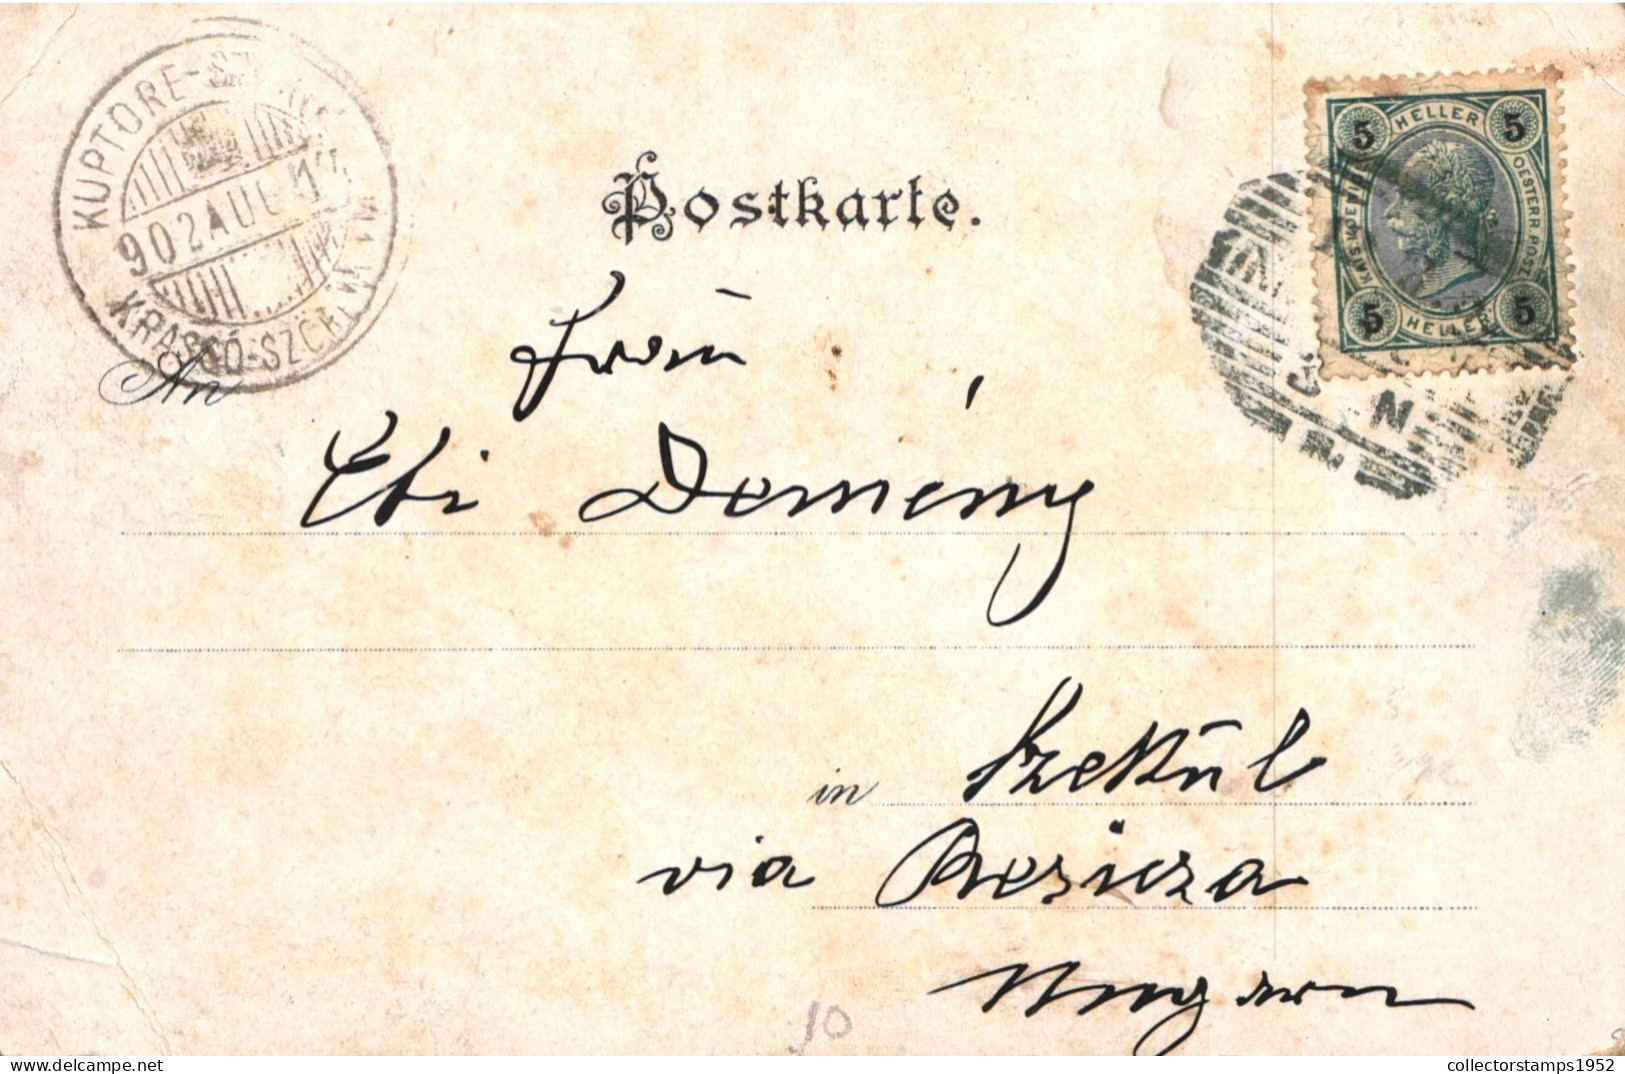 KUPTORE-SZ
902 AUG 1
KRASSÓ-SZÖRÉNY
Postkarte.
5 HELLER 5
OESTERR. POST.
KAIS. KOENIGL.
5 HELLER 5
An
Frau
Ebi Demény
in Szekul
via Resicza
Ungarn
10
collectorstamps1952